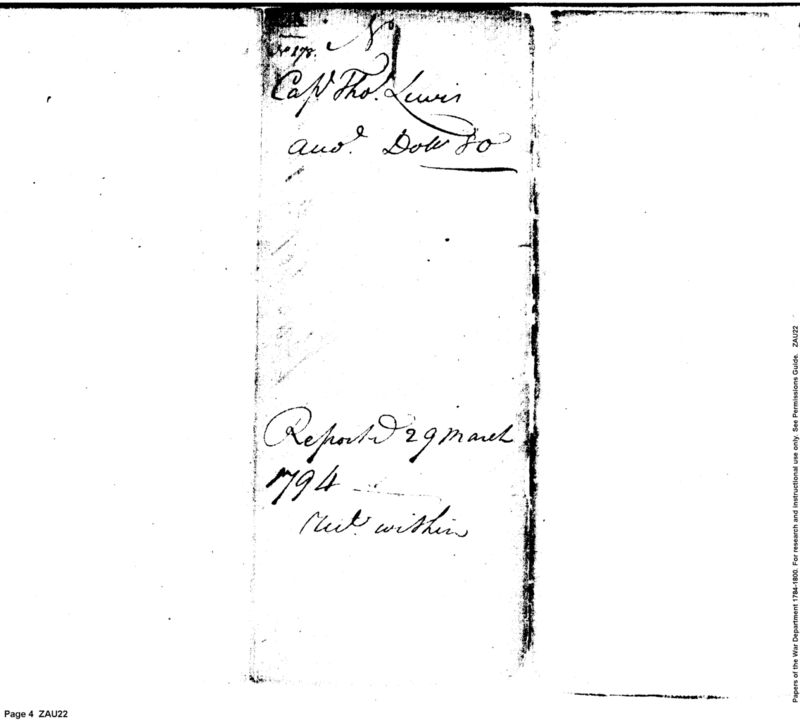 No 178.
Capt Thos. Lewis
amot. Dolls 80
Reported 29 March
1794
within
Page 4 ZAU22
Papers of the War Department 1784-1800. For research and instructional use only. See Permissions Guide. ZAU22